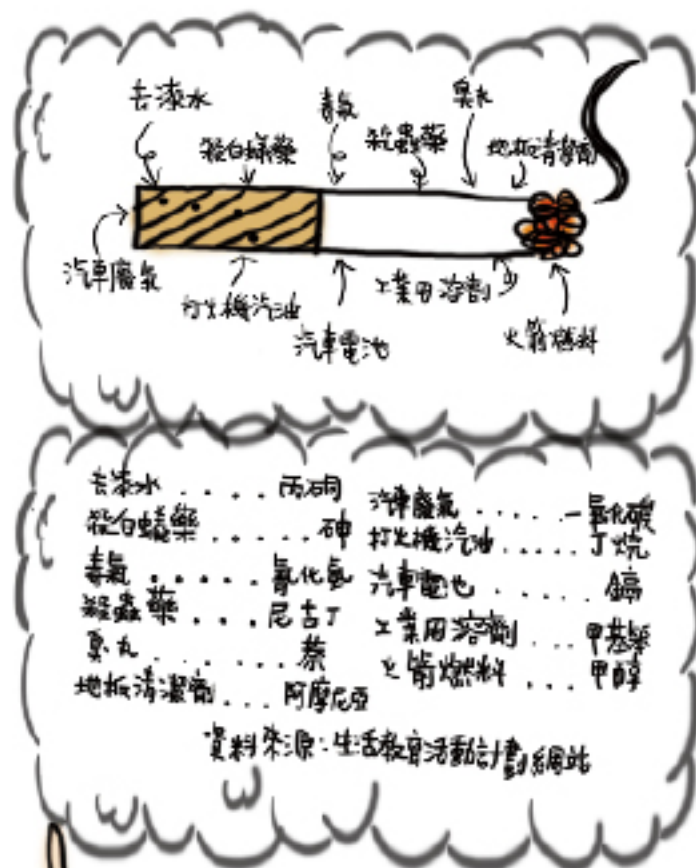 去漆水
毒氣
臭丸
殺白蟻藥
殺蟲藥
地板清潔劑
汽車廢氣
打火機汽油
汽車電池
工業用溶劑
火箭燃料
去漆水 . . . . 丙酮
殺白蟻藥 . . . . . 砷
毒氣 . . . . . 氰化氫
殺蟲藥 . . . 尼古丁
臭丸 . . . . . 萘
地板清潔劑 . . . 阿摩尼亞
汽車廢氣 . . . . . 一氧化碳
打火機汽油 . . . . . 丁烷
汽車電池 . . . . . 鎘
工業用溶劑 . . . 甲基苯
火箭燃料 . . . . 甲醇
資料來源:生活教育活動計劃網站